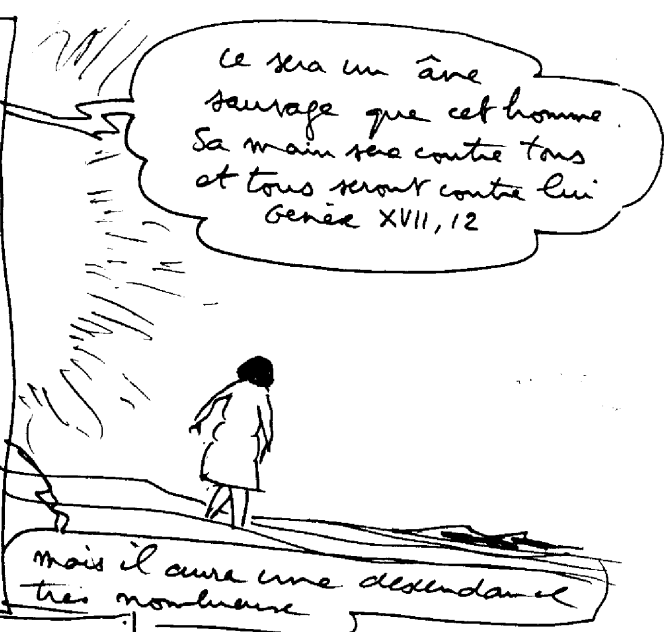 ce sera un âne
sauvage que cet homme.
Sa main sera contre tous
et tous seront contre lui
Genèse XVII, 12
mais il aura une descendance
très nombreuse